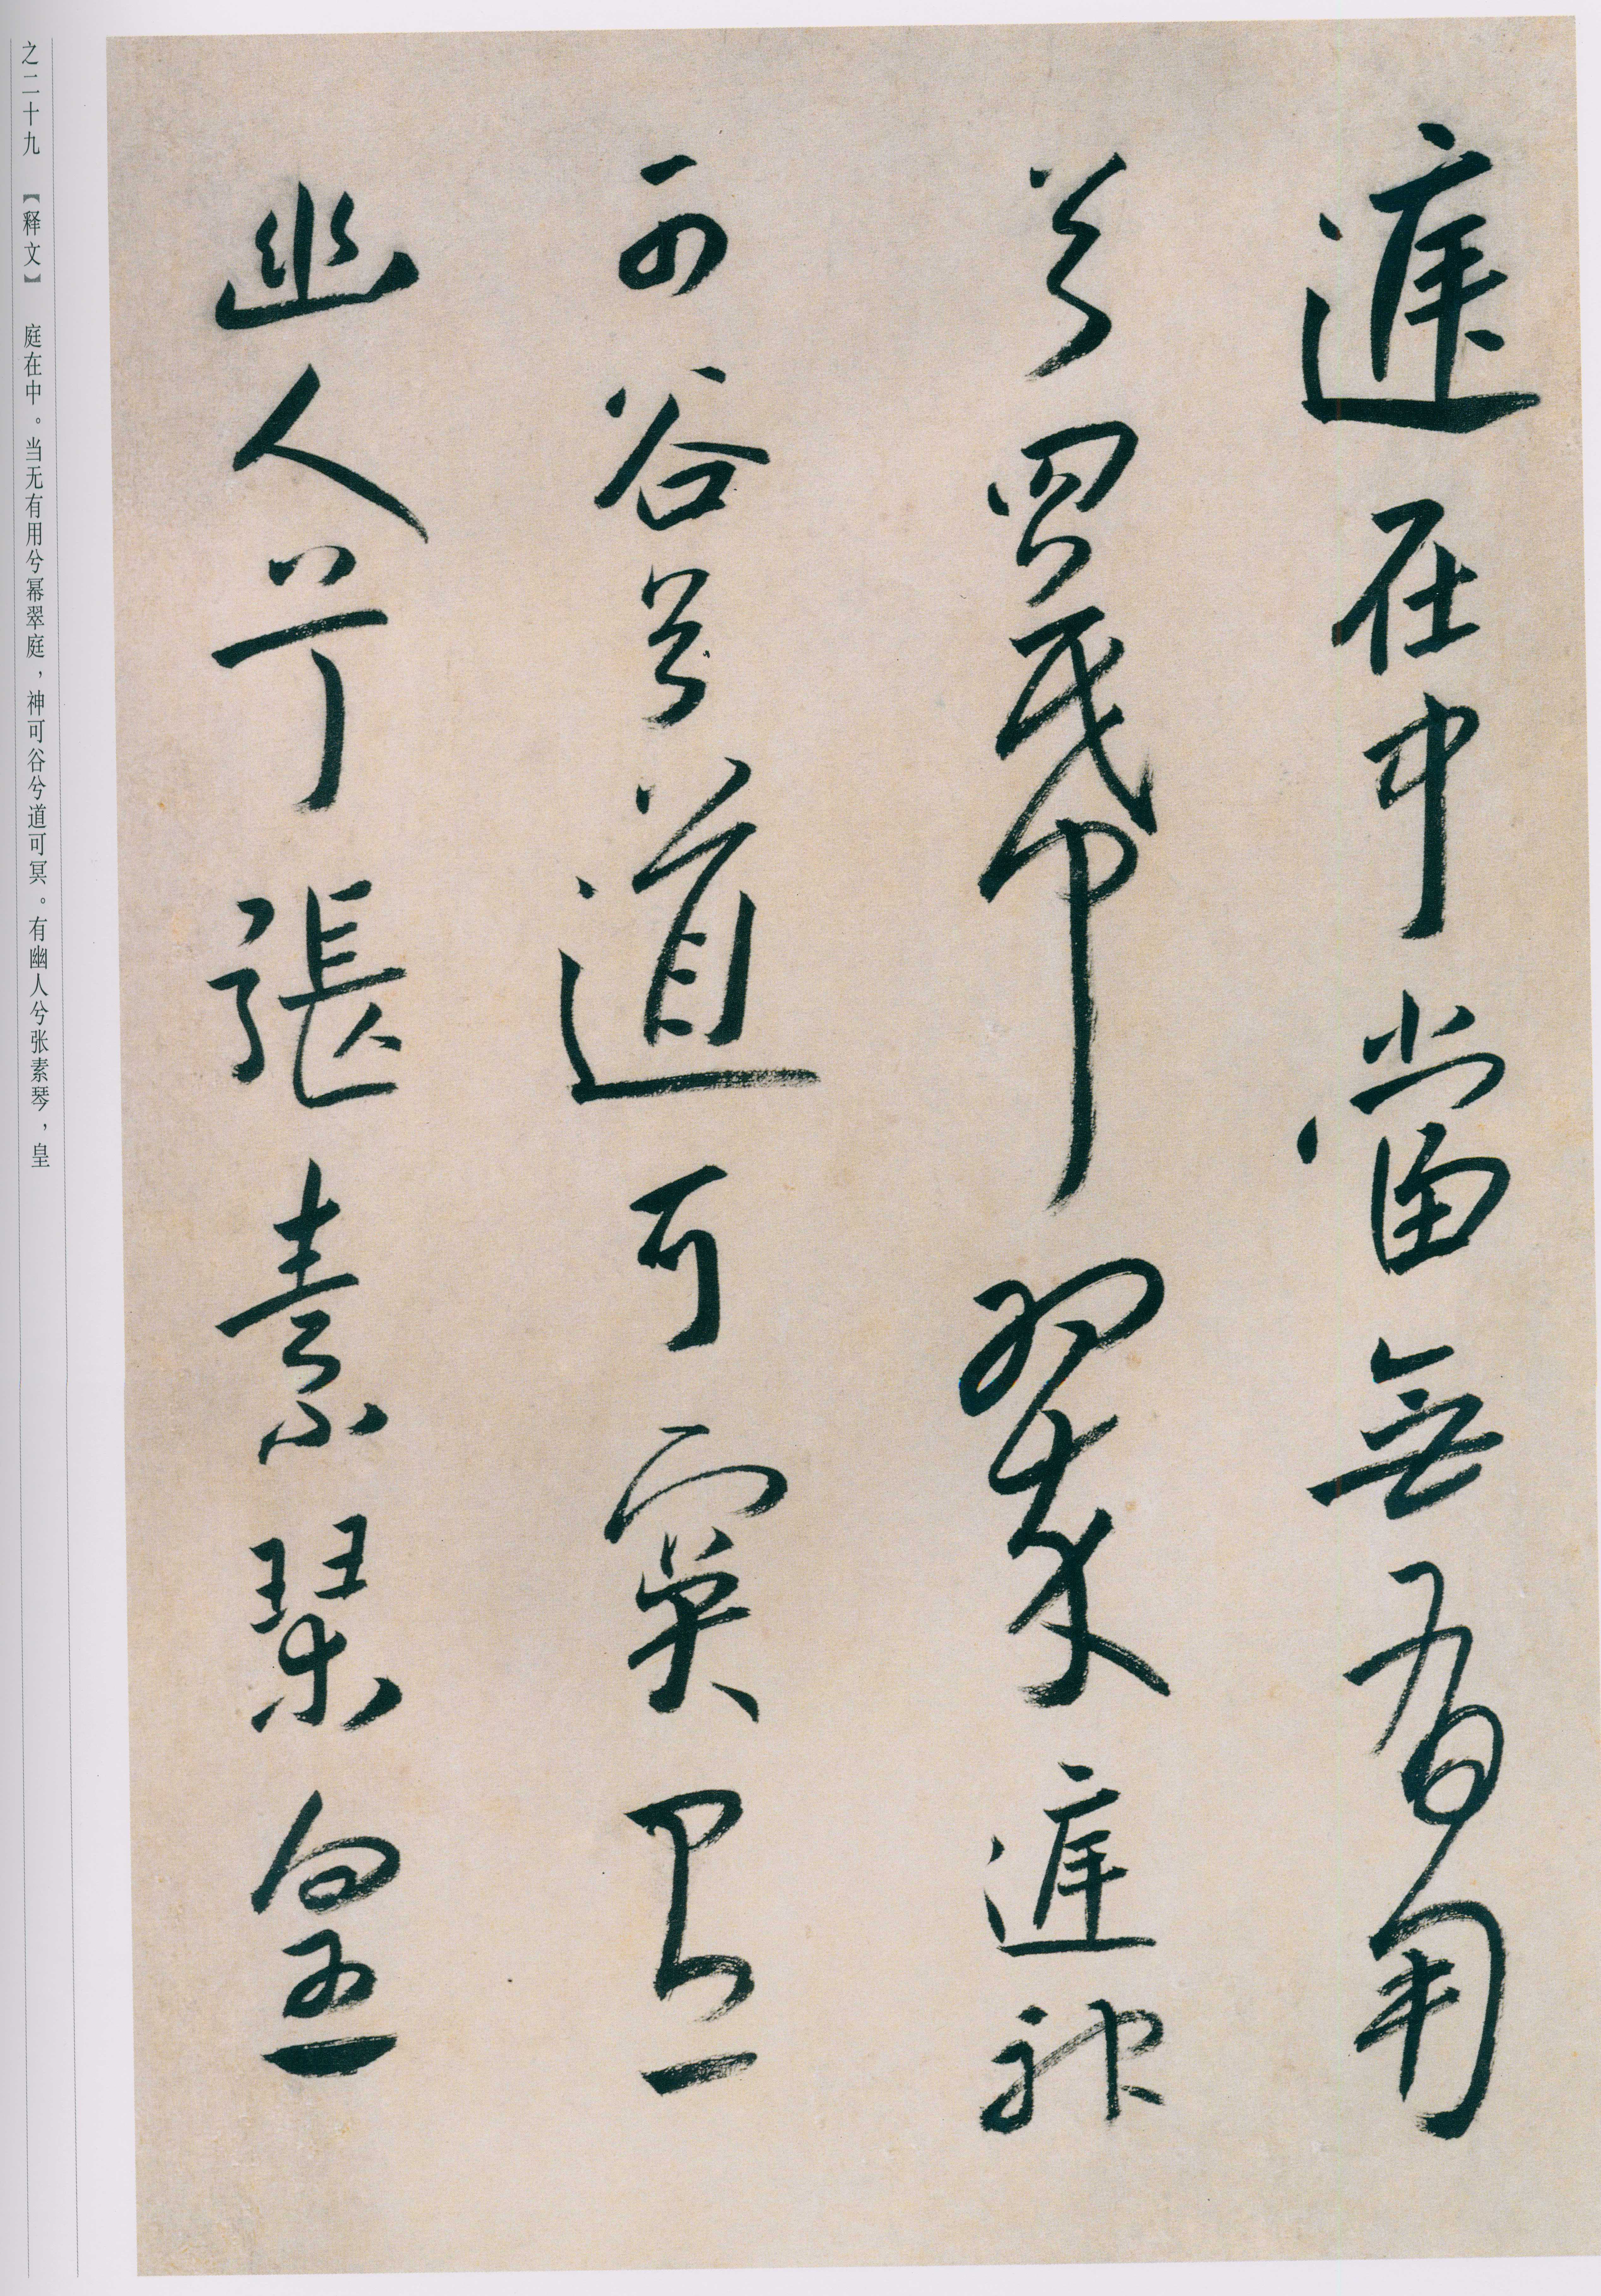 庭在中當無有用
兮羃翠庭神
可谷兮道可冥有
幽人兮張素琴皇
之二十九 【释文】 庭在中。当无有用兮幂翠庭，神可谷兮道可冥。有幽人兮张素琴，皇